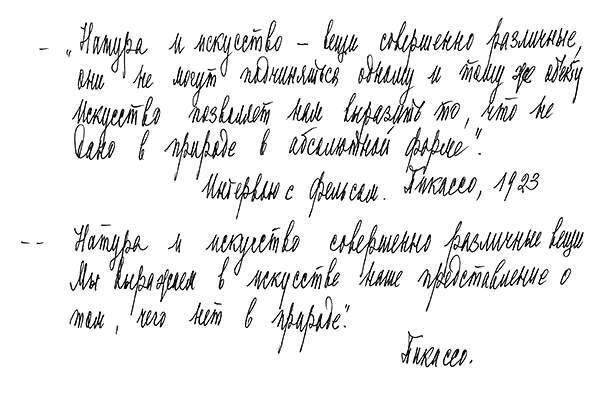 – „Натура и искусство – вещи совершенно различные,
они не могут подчиняться одному и тому же объекту
Искусство позволяет нам выразить то, что не
дано в природе в абсолютной форме".
Интервью с Фельсом. Пикассо, 1923
-- Натура и искусство совершенно различные вещи
Мы выражаем в искусстве наше представление о
том, чего нет в природе".
Пикассо.